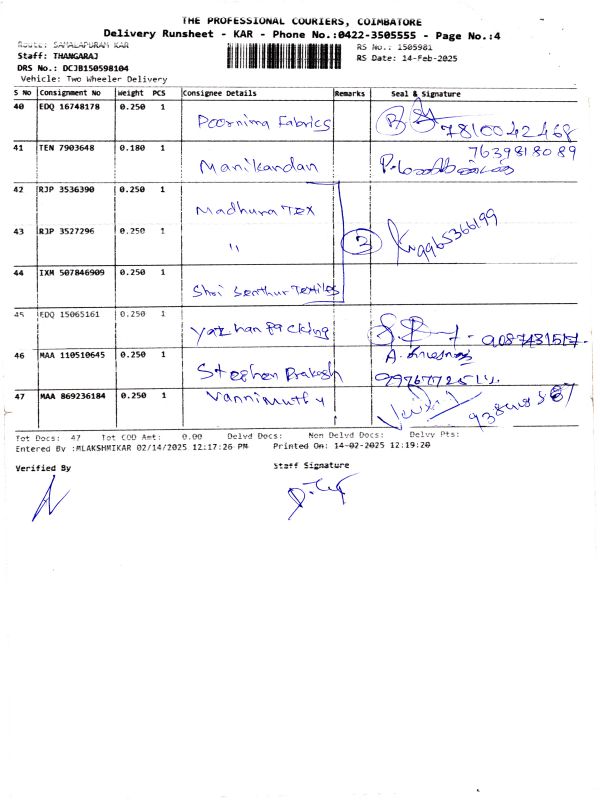 THE PROFESSIONAL COURIERS, COIMBATORE
Delivery Runsheet - KAR - Phone No.:0422-3505555 - Page No.:4
Route: SAMALAPURAM KAR RS No.: 1505981
Staff: THANGARAJ RS Date: 14-Feb-2025
DRS No.: DCJB150598104
Vehicle: Two Wheeler Delivery
S No Consignment No Weight PCS Consignee Details Remarks Seal & Signature
40 EDQ 16748178 0.250 1 Poornima Fabrics 7810042468
41 TEN 7903648 0.180 1 Manikandan 7639818089
42 RJP 3536390 0.250 1 Madhura Tex
43 RJP 3527296 0.250 1 " 3 9965366199
44 IXM 507846909 0.250 1 Shri Senthur Textiles
45 EDQ 15065161 0.250 1 Yazhan Packing
46 MAA 110510645 0.250 1 Stephen Prakash
47 MAA 869236184 0.250 1 Vannimuthu
Tot Docs: 47 Tot COD Amt: 0.00 Delvd Docs: Non Delvd Docs: Delvy Pts:
Entered By :MLAKSHMIKAR 02/14/2025 12:17:26 PM Printed On: 14-02-2025 12:19:20
Verified By Staff Signature